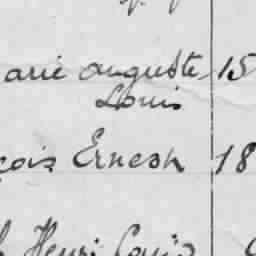 arie auguste 15
Louis
çois Ernest 18
Henri Louis